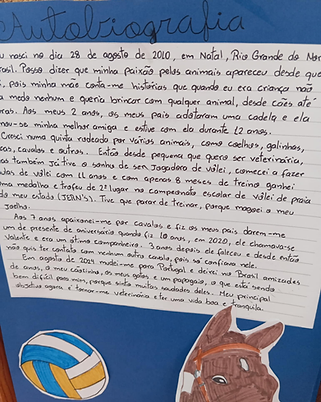 Autobiografia
u nasci no dia 28 de agosto de 2010, em Natal, Rio Grande do Nor
Brasil. Posso dizer que minha paixão pelos animais apareceu desde que
, pois minha mãe conta-me histórias que quando eu era criança não
a medo nenhum e queria brincar com qualquer animal, desde cães até
ras. Aos meus 2 anos, os meus pais adotaram uma cadela e ela
nou-se minha melhor amiga e estive com ela durante 12 anos.
Cresci numa quinta rodeado por vários animais, como coelhos, galinhas,
cos, cavalos e outros. Então desde pequena que quero ser veterinária,
as também já tive o sonho de ser jogadora de vôlei, comecei a fazer
ulas de vôlei com 11 anos e com apenas 8 meses de treino ganhei
uma medalha e troféu de 2º lugar no campeonato escolar de vôlei de praia
do meu estado (JERN'S). Tive que parar de treinar, porque magoei a meu
joelho.
Aos 7 anos apaixonei-me por cavalos e fiz os meus pais darem-me
um de presente de aniversário quando fiz 10 anos, em 2020, ele chamava-se
Valente e era um ótimo companheiro. 3 anos depois ele faleceu e desde então
não quis ter contato com nenhum outro cavalo, pois só confiava nele.
Em agosto de 2024 mudei-me para Portugal e deixei no Brasil amizades
de anos, o meu cãozinho, os meus gatos e um papagaio, o que está sendo
bem difícil para mim, porque sinto muitas saudades deles. Meu principal
objetivo agora é tornar-me veterinária e ter uma vida boa e tranquila.